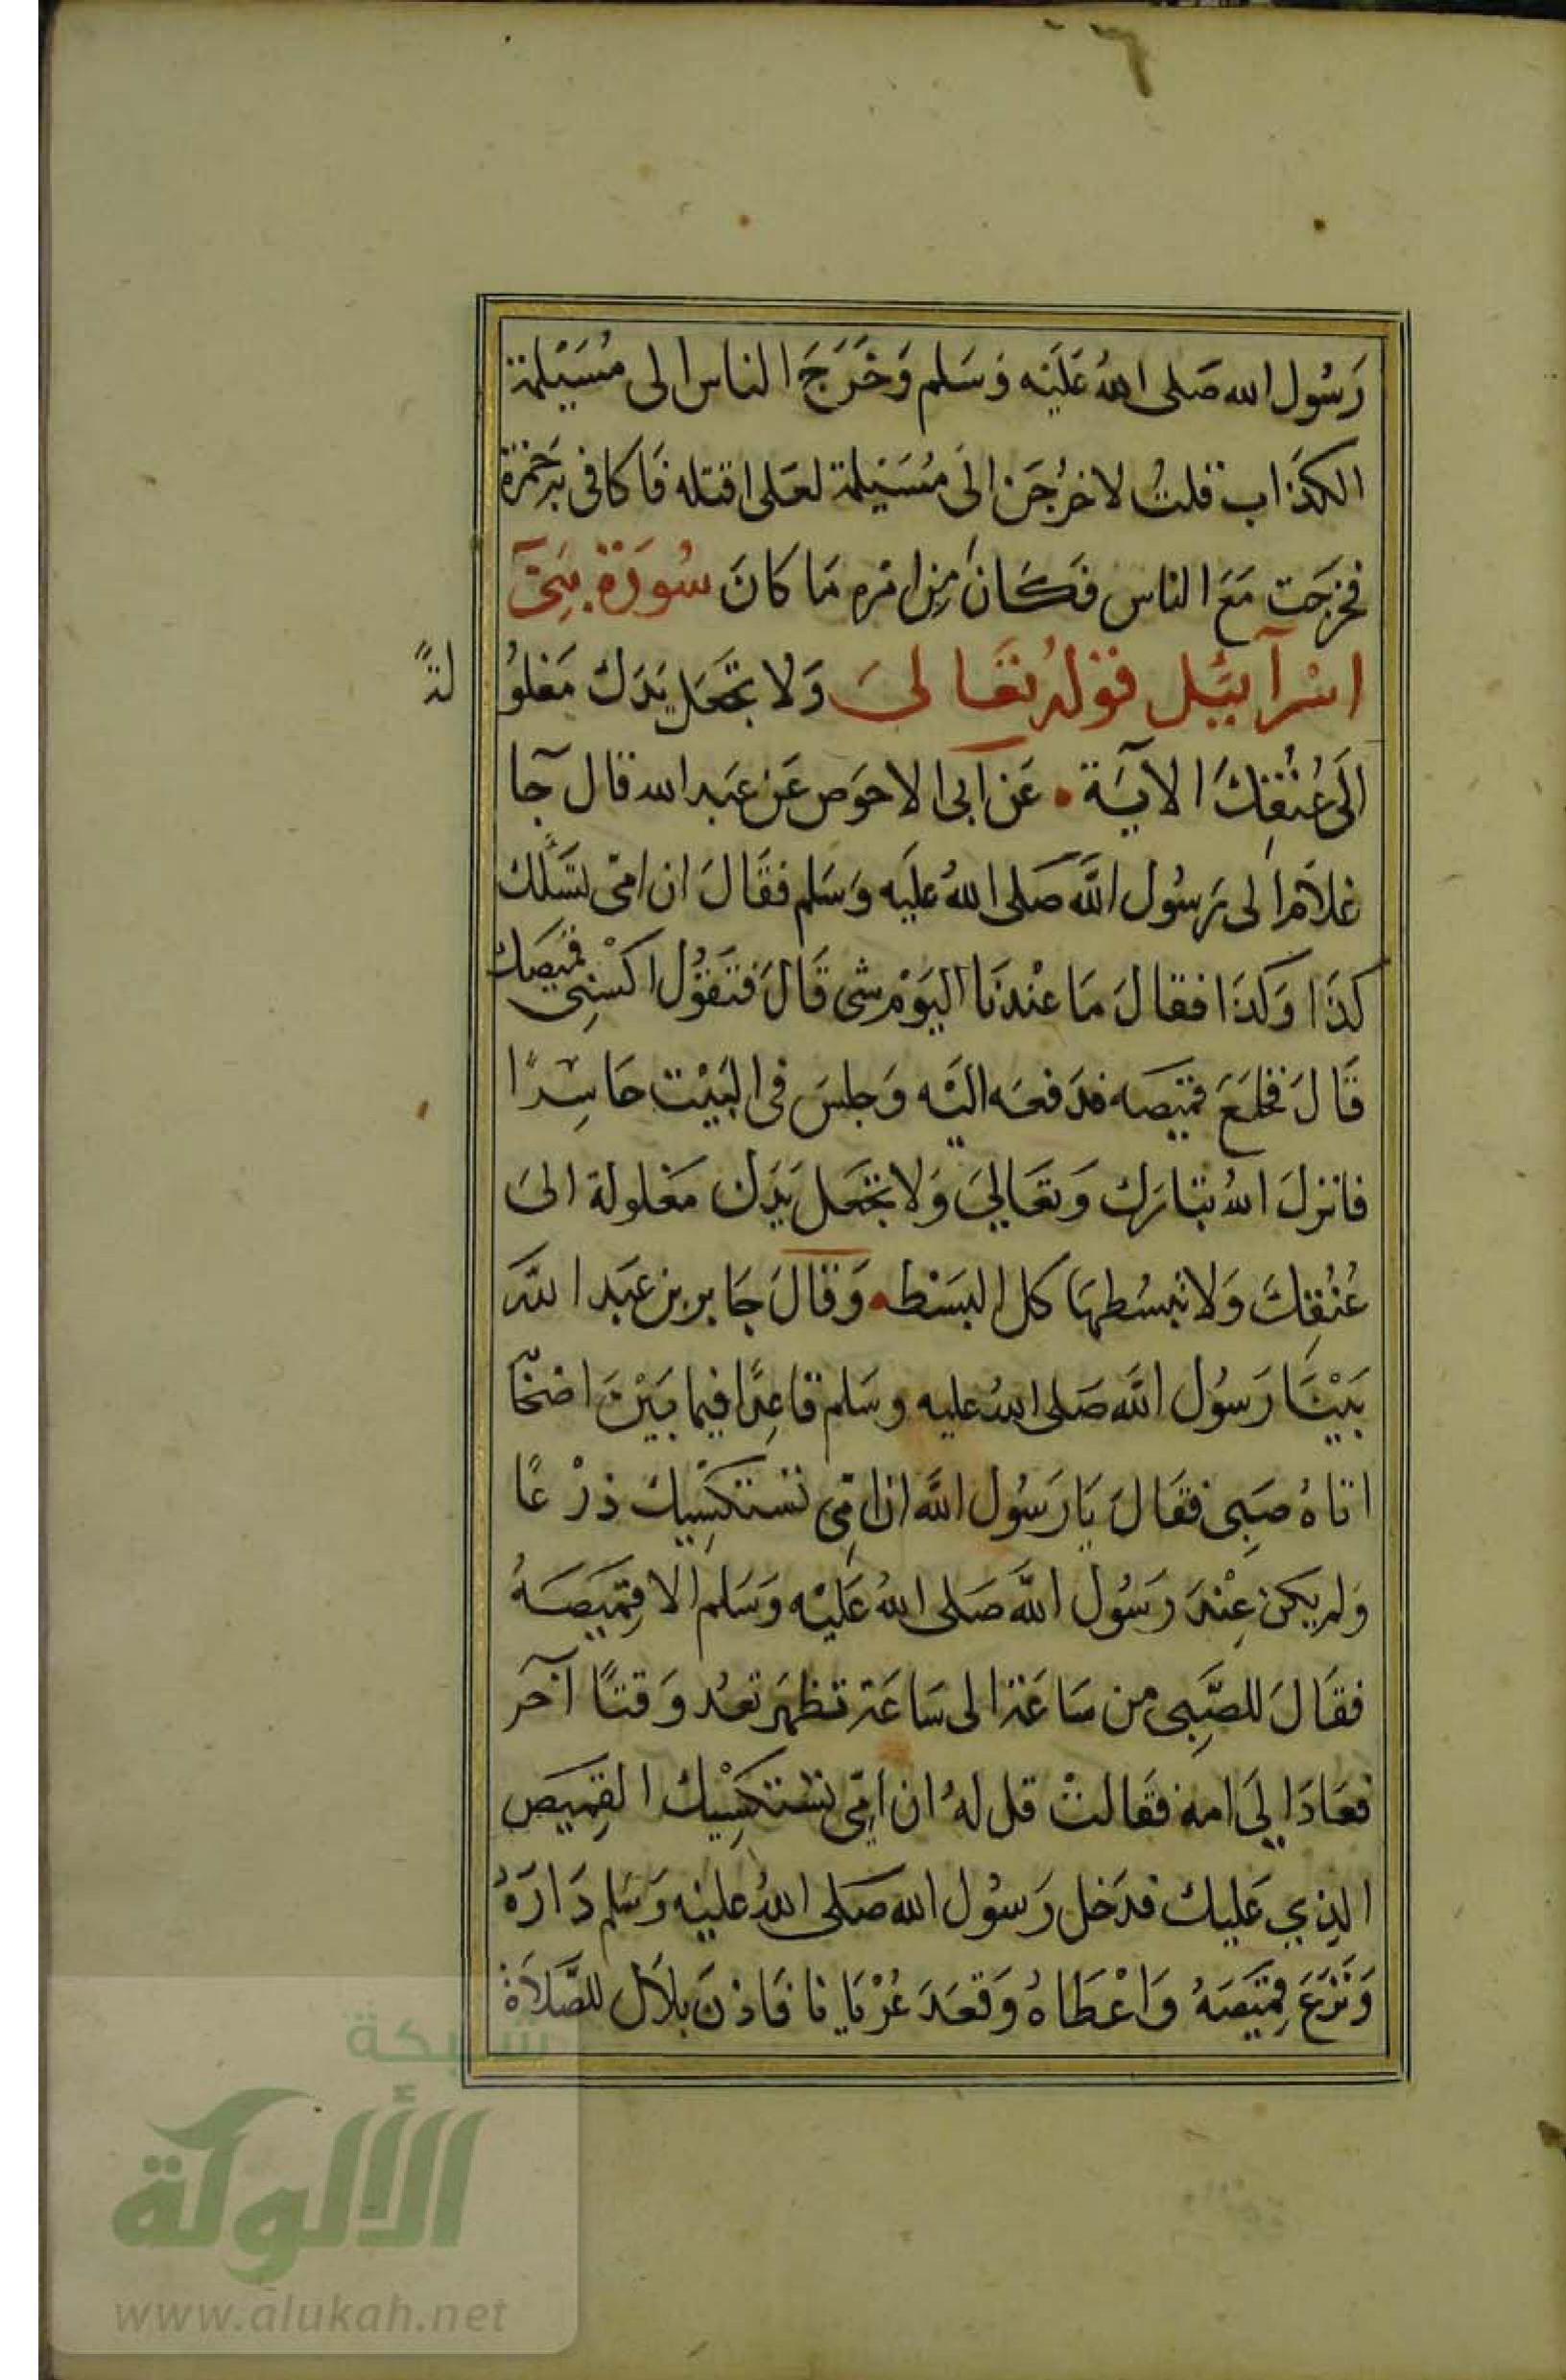 رَسُول الله صَلى اللهُ عَلَيْه وَسَلم وَخَرَجَ الناس الى مُسَيْلمة
الكذاب قلتُ لاخرُجَن الَى مُسَيْلمة لعَلى اقتله فَاكافى به حَمزة
فخرَجت مَعَ الناس فكَانَ مِن امره مَا كانَ سُورَة بَنِي
اسْرآئيْل قوْلهُ تعَالىَ وَلا تجعَل يَدَك مَغلوُ
لةً
الَى عُنُقِكَ الايَة • عَن ابى الاحوَص عَن عَبد الله قال جَآ
غلام الى رَسُول اللَّه صَلى اللهُ عليَه وَسَلم فقَالَ ان امّى تسَئلك
كذَا وَكذَا فقالَ مَا عنْدنَا اليَوْم شى قَالَ فتَقوُل اكسْنِى قمَيصَك
قَالَ فخلعَ قميَصه فدَفعَه اليْه وَجلسَ فى البَيْت حَاسِرًا
فانزلَ اللهُ تبَارَك وَتعَالىَ وَلا تجعَل يَدَك مَغلولة الىَ
عُنُقِكَ وَلا تبسُطهَا كل البَسْط • وَقالَ جَابر بن عَبَد اللَّه
بَيْنَا رَسُول اللَّه صَلى اللهُ عليه وسَلم قاعِدًا فيما بَيْنَ اصْحَا
اتاهُ صَبِى فقَالَ يَا رَسُول اللَّه ان امّى تسْتكسِيْك دِرْعًا
وَلم يكن عِنْدَ رَسُول اللَّه صَلى اللهُ عَليْه وَسَلم الا قمِيَصَهُ
فقَالَ للصَّبِى من سَاعَة الى سَاعَة تظهرَ تعُد وَقتًا آخَر
فعَادَ اِلىَ امه فقَالتْ قل لهُ ان امِّى تسْتكسِيْك القمِيَص
الذِي عَليك فدَخل رَسُول الله صَلى اللهُ عليْه وَسَلم دَارَهُ
وَنزَعَ قمِيَصَهُ وَاعْطَاهُ وَقعَدَ عُرْيَانا فَاذنَ بلاَل للصَّلاَة
شبكة
الألوكة
www.alukah.net